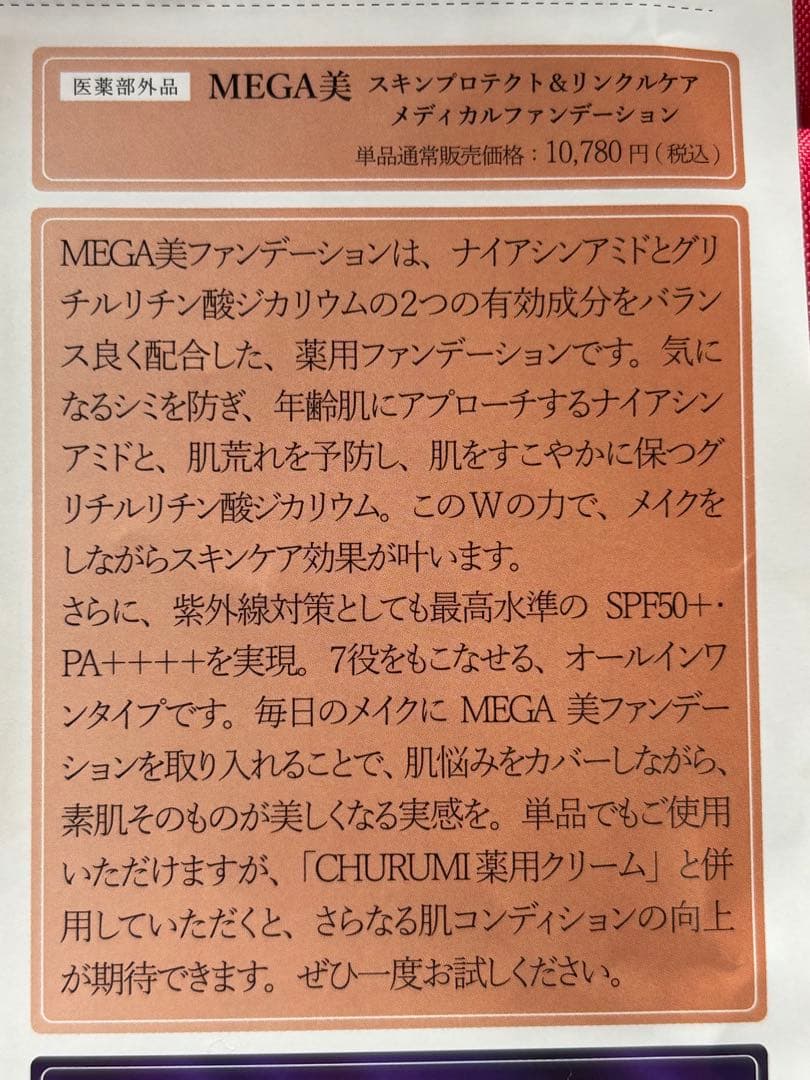 医薬部外品 MEGA美 スキンプロテクト＆リンクルケア
メディカルファンデーション
単品通常販売価格：10,780円（税込）
MEGA美ファンデーションは、ナイアシンアミドとグリ
チルリチン酸ジカリウムの2つの有効成分をバラン
ス良く配合した、薬用ファンデーションです。気に
なるシミを防ぎ、年齢肌にアプローチするナイアシン
アミドと、肌荒れを予防し、肌をすこやかに保つグ
リチルリチン酸ジカリウム。このWの力で、メイクを
しながらスキンケア効果が叶います。
さらに、紫外線対策としても最高水準の SPF50＋・
PA＋＋＋＋を実現。7役をもこなせる、オールインワ
ンタイプです。毎日のメイクに MEGA 美ファンデー
ションを取り入れることで、肌悩みをカバーしながら、
素肌そのものが美しくなる実感を。単品でもご使用
いただけますが、「CHURUMI薬用クリーム」と併
用していただくと、さらなる肌コンディションの向上
が期待できます。ぜひ一度お試しください。